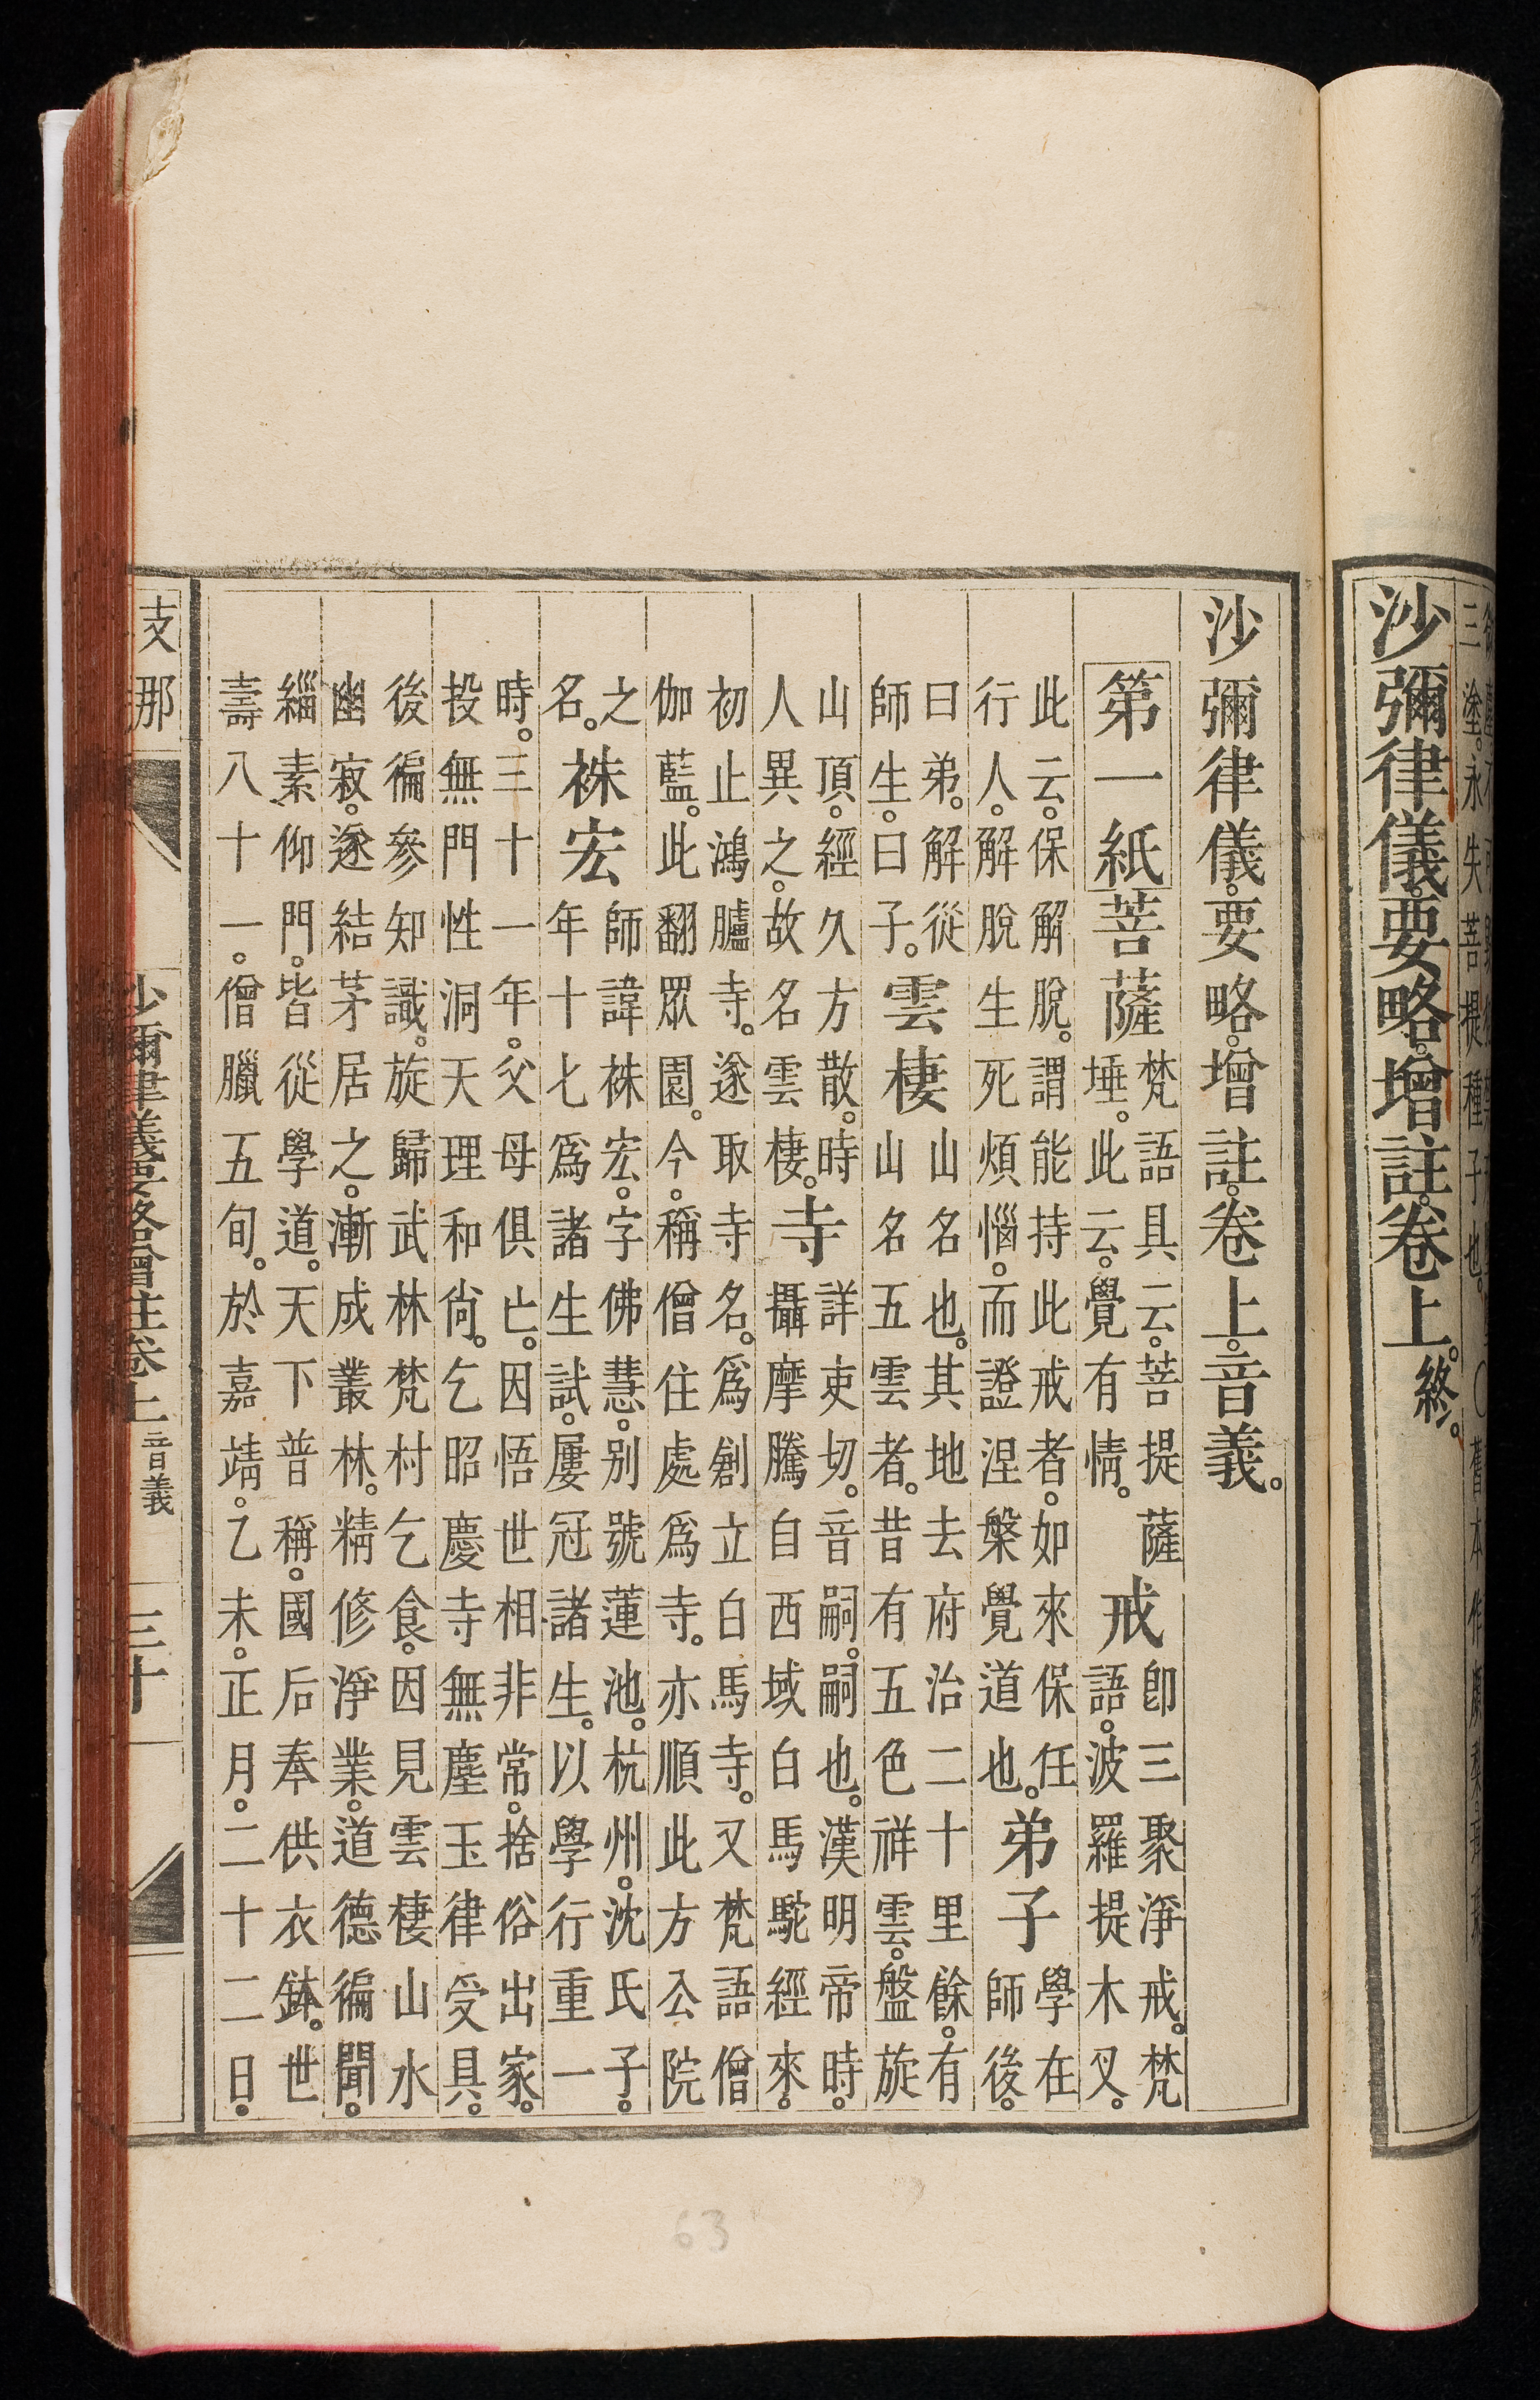 三塗。永失菩提種子也。
○舊本作
沙彌律儀。要略。增註。卷上。終。
沙彌律儀。要略。增註。卷上。音義。
第一紙菩薩梵語具云。菩提薩埵。此云。覺有情。戒卽三聚淨戒。梵語。波羅提木叉。
此云。保解脫。謂能持此戒者。如來保任行人。解脫生死煩惱。而證涅槃覺道也。弟子學在師後。
曰弟。解從師生。曰子。雲棲山名也。其地去府治二十里餘。有山名五雲者。昔有五色祥雲。盤旋
山頂。經久方散。時人異之。故名雲棲。寺詳吏切。音嗣。嗣也。漢明帝時。攝摩騰自西域白馬駝經來。
初止鴻臚寺。遂取寺名。爲創立白馬寺。又梵語僧伽藍。此翻眾園。今。稱僧住處爲寺。亦順此方公院
之名。袾宏師諱袾宏。字佛慧。別號蓮池。杭州。沈氏子。年十七爲諸生試。屢冠諸生。以學行重一
時。三十一年。父母俱亡。因悟世相非常。捨俗出家。投無門性洞天理和尙。乞昭慶寺無塵玉律受具。
後徧參知識。旋歸武林梵村乞食。因見雲棲山水幽寂。遂結茅居之。漸成叢林。精修淨業。道德徧聞。
緇素仰門。皆從學道。天下普稱。國后奉供衣鉢。世壽八十一。僧臘五旬。於嘉靖。乙未。正月。二十二日。
支那
沙彌律儀要略增註卷上 音義
三十
63